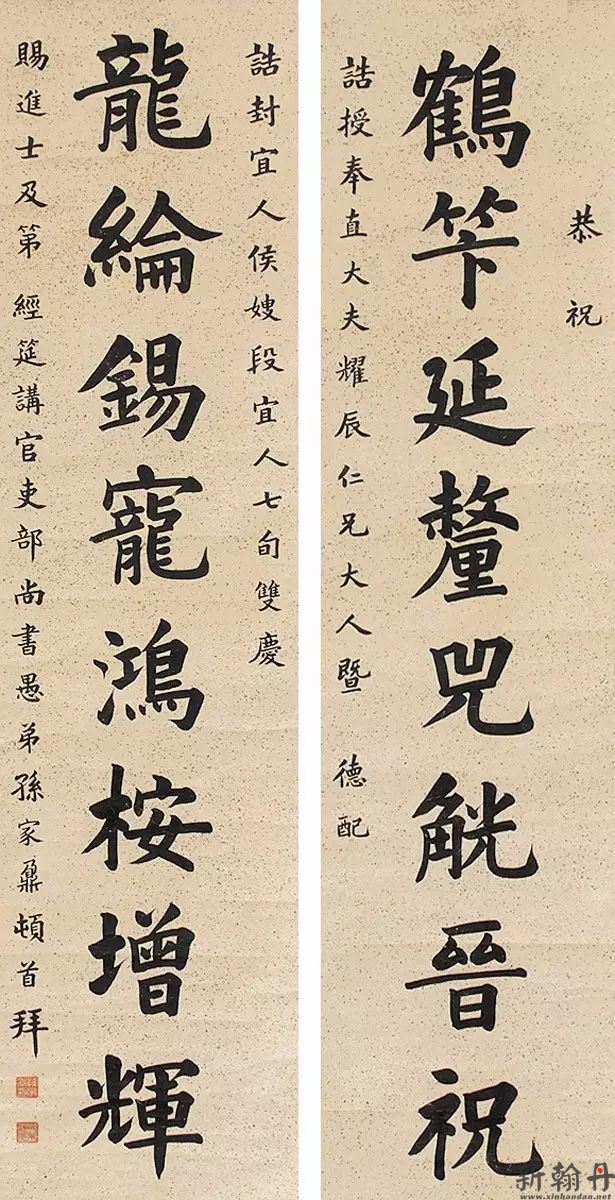 恭祝
鶴笇延釐兕觥晉祝
誥授奉直大夫耀辰仁兄大人暨 德配
誥封宜人侯嫂段宜人七旬雙慶
龍綸錫寵鴻桉增輝
賜進士及第經筵講官吏部尚書愚弟孫家鼐頓首拜
新翰丹
www.xinhandan.net